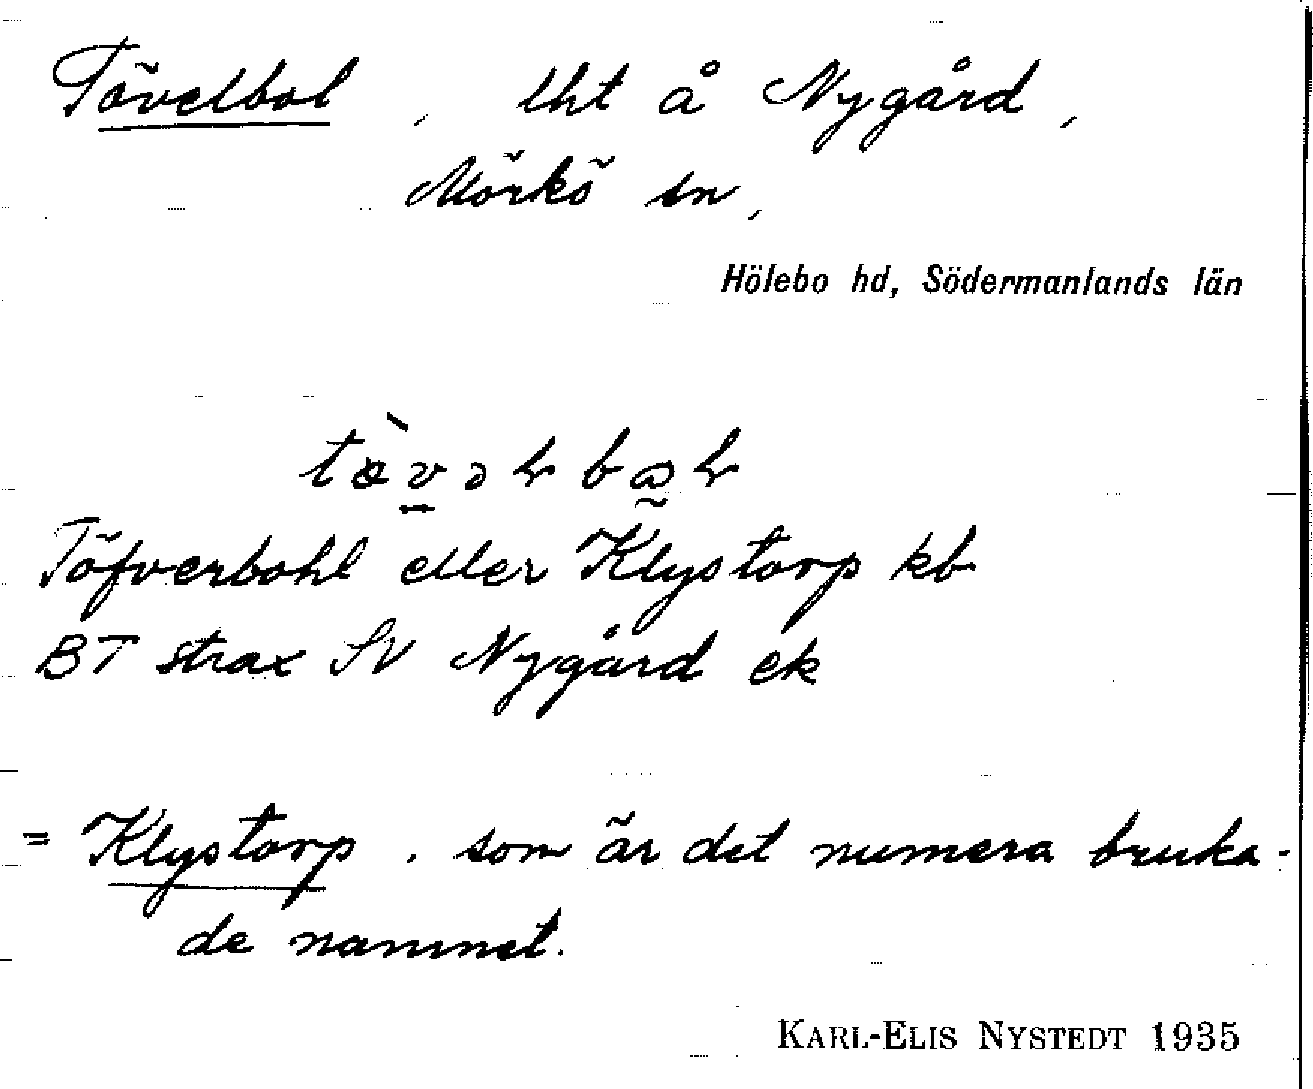 Tövelbol, lht å Nygård,
Mörkö sn,
Hölebo hd, Södermanlands län
Töfverbohl eller Klystorp kb
BT strax SV Nygård ek
= Klystorp, som är det numera bruka-
de namnet.
KARL-ELIS NYSTEDT 1935